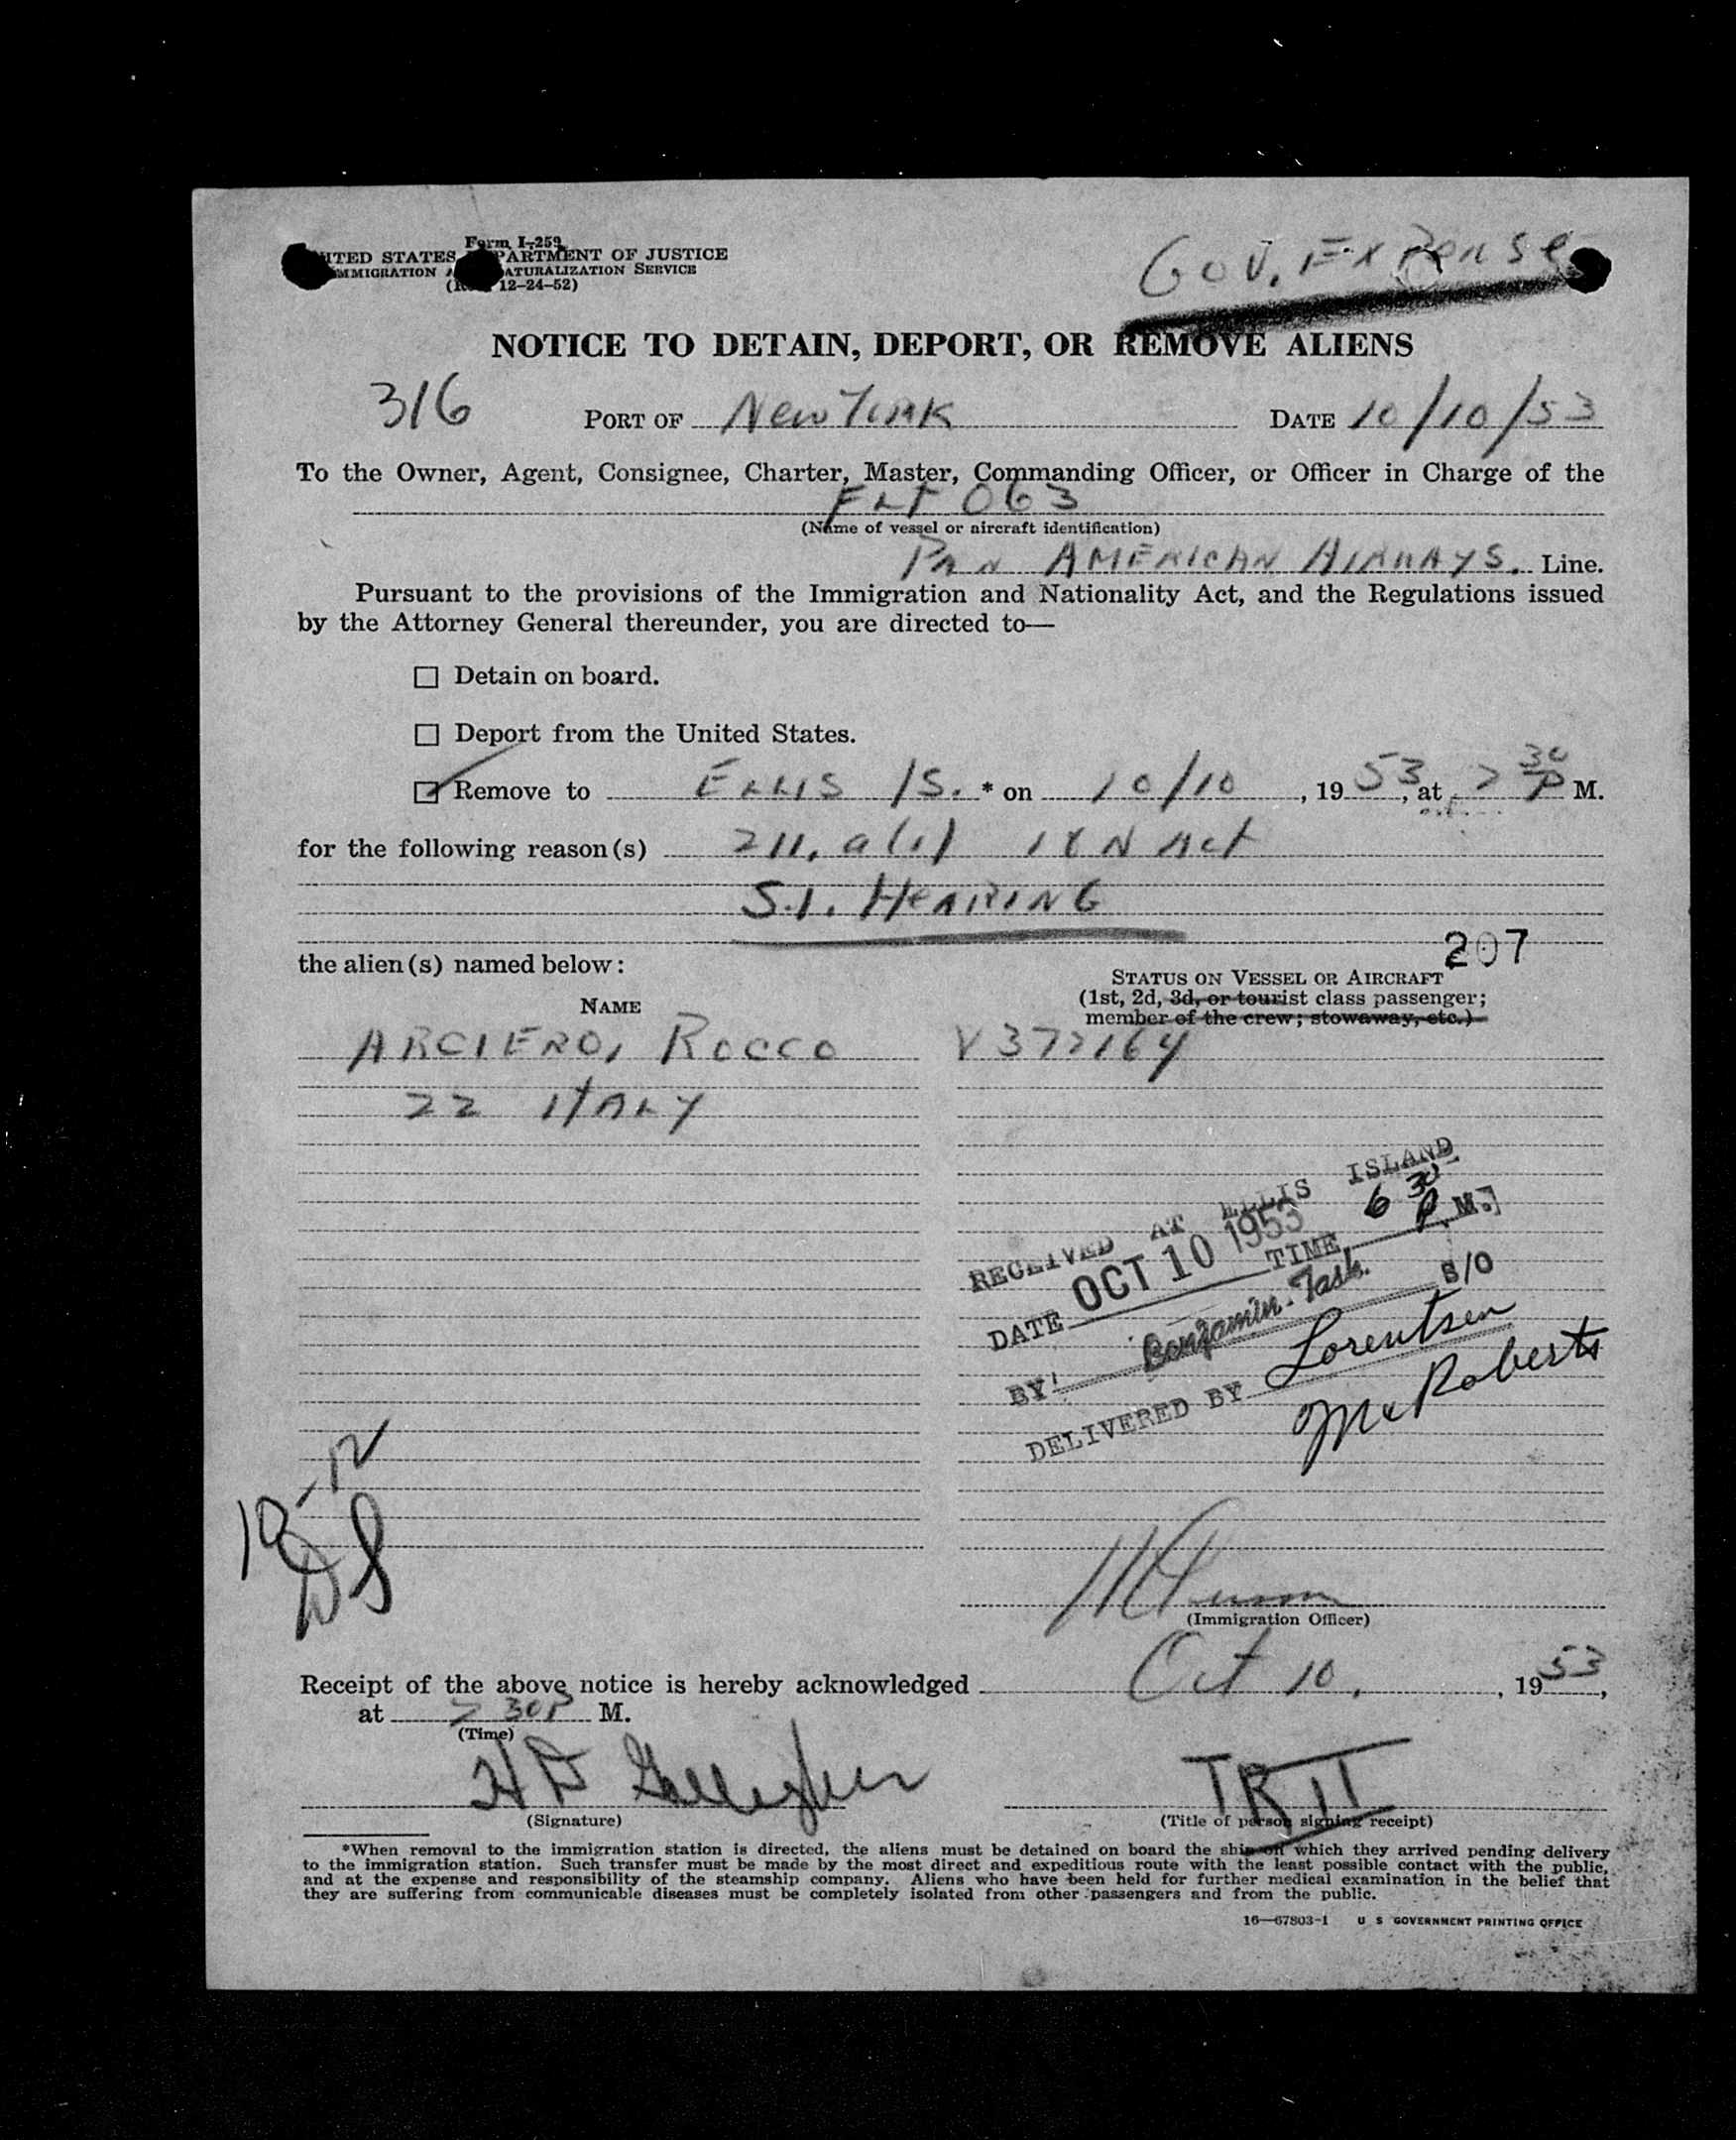 Form I-259
UNITED STATES DEPARTMENT OF JUSTICE
IMMIGRATION AND NATURALIZATION SERVICE
(Rev. 12-24-52)
Gov. Expense
NOTICE TO DETAIN, DEPORT, OR REMOVE ALIENS
316
PORT OF New York DATE 10/10/53
To the Owner, Agent, Consignee, Charter, Master, Commanding Officer, or Officer in Charge of the
FLT 063
(Name of vessel or aircraft identification)
PAN AMERICAN AIRWAYS. Line.
Pursuant to the provisions of the Immigration and Nationality Act, and the Regulations issued
by the Attorney General thereunder, you are directed to—
☐ Detain on board.
☐ Deport from the United States.
☑ Remove to ELLIS IS. * on 10/10, 1953, at 2 30 P M.
for the following reason(s) 211. a(1) I & N Act
S.I. HEARING
207
the alien(s) named below:
STATUS ON VESSEL OR AIRCRAFT
NAME
(1st, 2d, 3d, or tourist class passenger;
member of the crew; stowaway, etc.)
ARCIERO, ROCCO V372164
22 ITALY
RECEIVED AT ELLIS ISLAND
DATE OCT 10 1953 TIME 6 30 P. M.
BY: Benjamin Task. S/O
DELIVERED BY Lorentsen
McRoberts
10-12
DS
(Immigration Officer)
Receipt of the above notice is hereby acknowledged Oct 10, 1953,
at 2 30P M.
(Time)
H D Gallagher TR II
(Signature) (Title of person signing receipt)
*When removal to the immigration station is directed, the aliens must be detained on board the ship on which they arrived pending delivery
to the immigration station. Such transfer must be made by the most direct and expeditious route with the least possible contact with the public,
and at the expense and responsibility of the steamship company. Aliens who have been held for further medical examination in the belief that
they are suffering from communicable diseases must be completely isolated from other passengers and from the public.
16—67803-1 U S GOVERNMENT PRINTING OFFICE